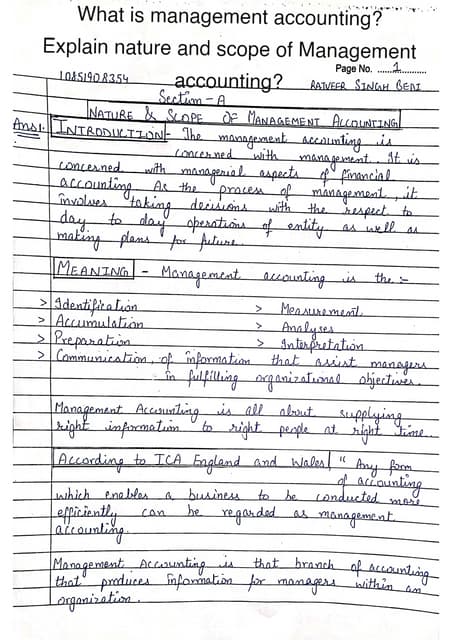 What is management accounting?
Explain nature and scope of Management
accounting?
Page No. ......1............
10851908354
RATVEER SINGH BEDI
Section - A
NATURE & SCOPE OF MANAGEMENT ACCOUNTING
Ans1. INTRODUCTION - The management accounting is
concerned with management. It is
concerned with managerial aspects of financial
accounting. As the process of management, it
involves taking decisions with the respect to
day to day operations of entity as well as
making plans for future.
MEANING - Management accounting is the :-
> Identification > Measurement
> Accumulation > Analyses
> Preparation > Interpretation
> Communication, of information that assist managers
in fulfilling organizational objectives.
Management Accounting is all about supplying
right information to right people at right time..
According to ICA England and Wales " Any form
of accounting
which enables a business to be conducted more
efficiently can be regarded as management
accounting.
Management Accounting is that branch of accounting
that produces information for managers within an
organization.